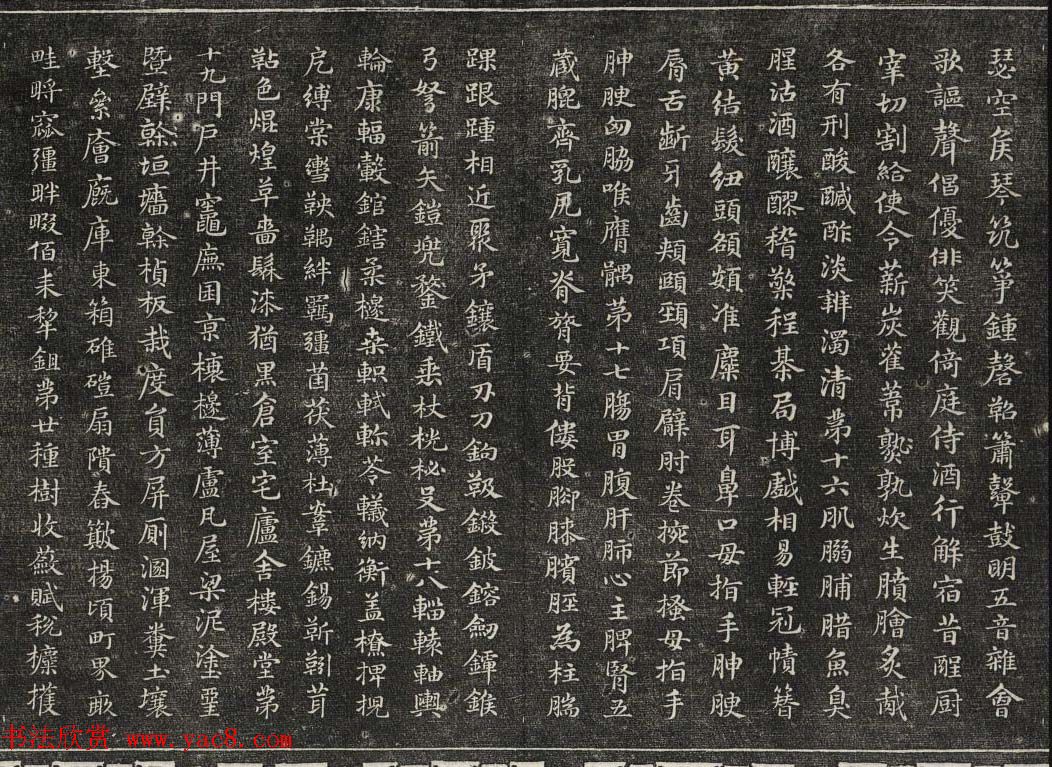 瑟空侯琴筑箏鍾磬鞀簫鼙鼓明五音雜會
歌謳聲倡優俳笑觀倚庭侍酒行解宿昔酲厨
宰切割給使令薪炭萑葦孰炊生膹膾炙胾
各有刑酸醎酢淡辨濁清第十六肌䐞脯腊魚臭
腥沽酒釀醪稽檠程棊局博戲相易輕冠幘簪
黃結髮紐頭頟頞准麋目耳鼻口毋指手胂腴
脣舌齗牙齒頰頤頸項肩臂肘卷捥節搔母指手
胂腴匈脇喉膺髃第十七腸胃腹肝肺心主脾腎五
藏膍齊乳尻寬脊膂要背僂股腳膝臏脛為柱腨
踝跟踵相近聚矛鑲盾刃刀鉤鈒鎩鈹鎔劒鐔錐
弓弩箭矢鎧兜鍪鐵垂杖桄柲殳第十八輜轅軸輿
輪康輻轂錧鎋柔檼桑軹軾軫苓轙納衡蓋橑椑抳
戹縛棠轡鞅羈絆羈疆茵茯薄杜鞌鑣鍚靳靷茸
鞊色焜煌革嗇髹漆猶黑倉室宅廬舍樓殿堂第
十九門戶井竈廡囷京欀椽薄盧瓦屋梁泥塗堊
墍壁榦垣墻榦楨板栽度員方屏厠溷渾糞土壤
墼絫廥廐庫東箱碓磑扇隤舂簸揚頃町界畝
畦埒窳疆畔畷佰耒犂鉏第廿種樹收斂賦稅攈穫
书法欣赏 www.yac8.com